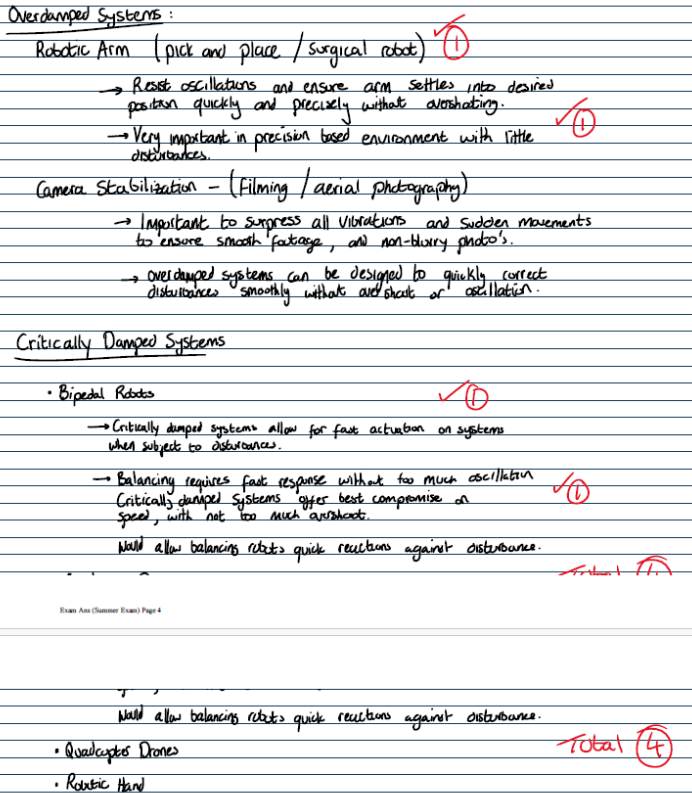 Overdamped Systems :
Robotic Arm (pick and place / surgical robot) ✓①
→ Resist oscillations and ensure arm settles into desired
position quickly and precisely without overshooting.
✓①
→ Very important in precision based environment with little
disturbances.
Camera Stabilization - (Filming / aerial photography)
→ Important to surpress all vibrations and sudden movements
to ensure smooth footage, and non-blurry photo's.
→ overdamped systems can be designed to quickly correct
disturbances smoothly without overshoot or oscillation.
Critically Damped Systems
• Bipedal Robots ✓①
→ Critically damped systems allow for fast actuation on systems
when subject to disturbances.
→ Balancing requires fast response without too much oscillation
Critically damped systems offer best compromise on ✓①
speed, with not too much overshoot.
Would allow balancing robots quick reactions against disturbance.
Exam Ans (Summer Exam) Page 4
Would allow balancing robots quick reactions against disturbance.
• Quadcopter Drones Total ④
• Robotic Hand